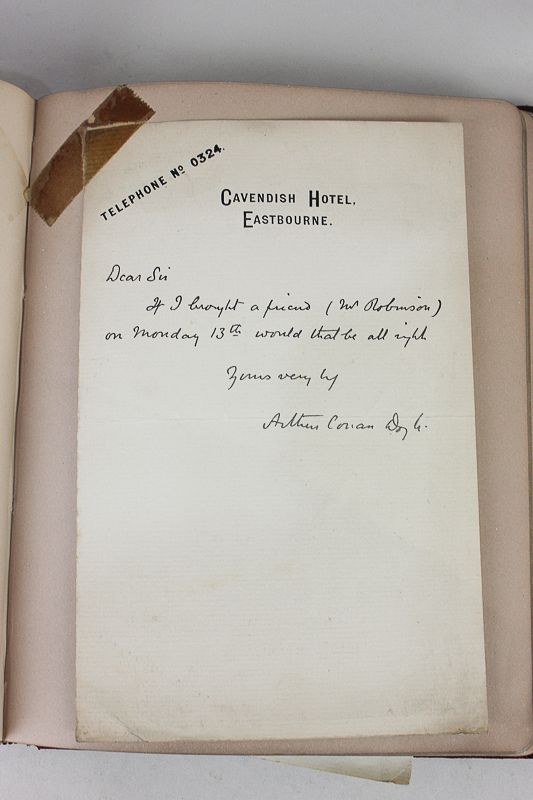 TELEPHONE Nº 0324.
CAVENDISH HOTEL,
EASTBOURNE.
Dear Sir
If I brought a friend (Mr Robinson)
on Monday 13th would that be all right
Yours very ty
Arthur Conan Doyle.